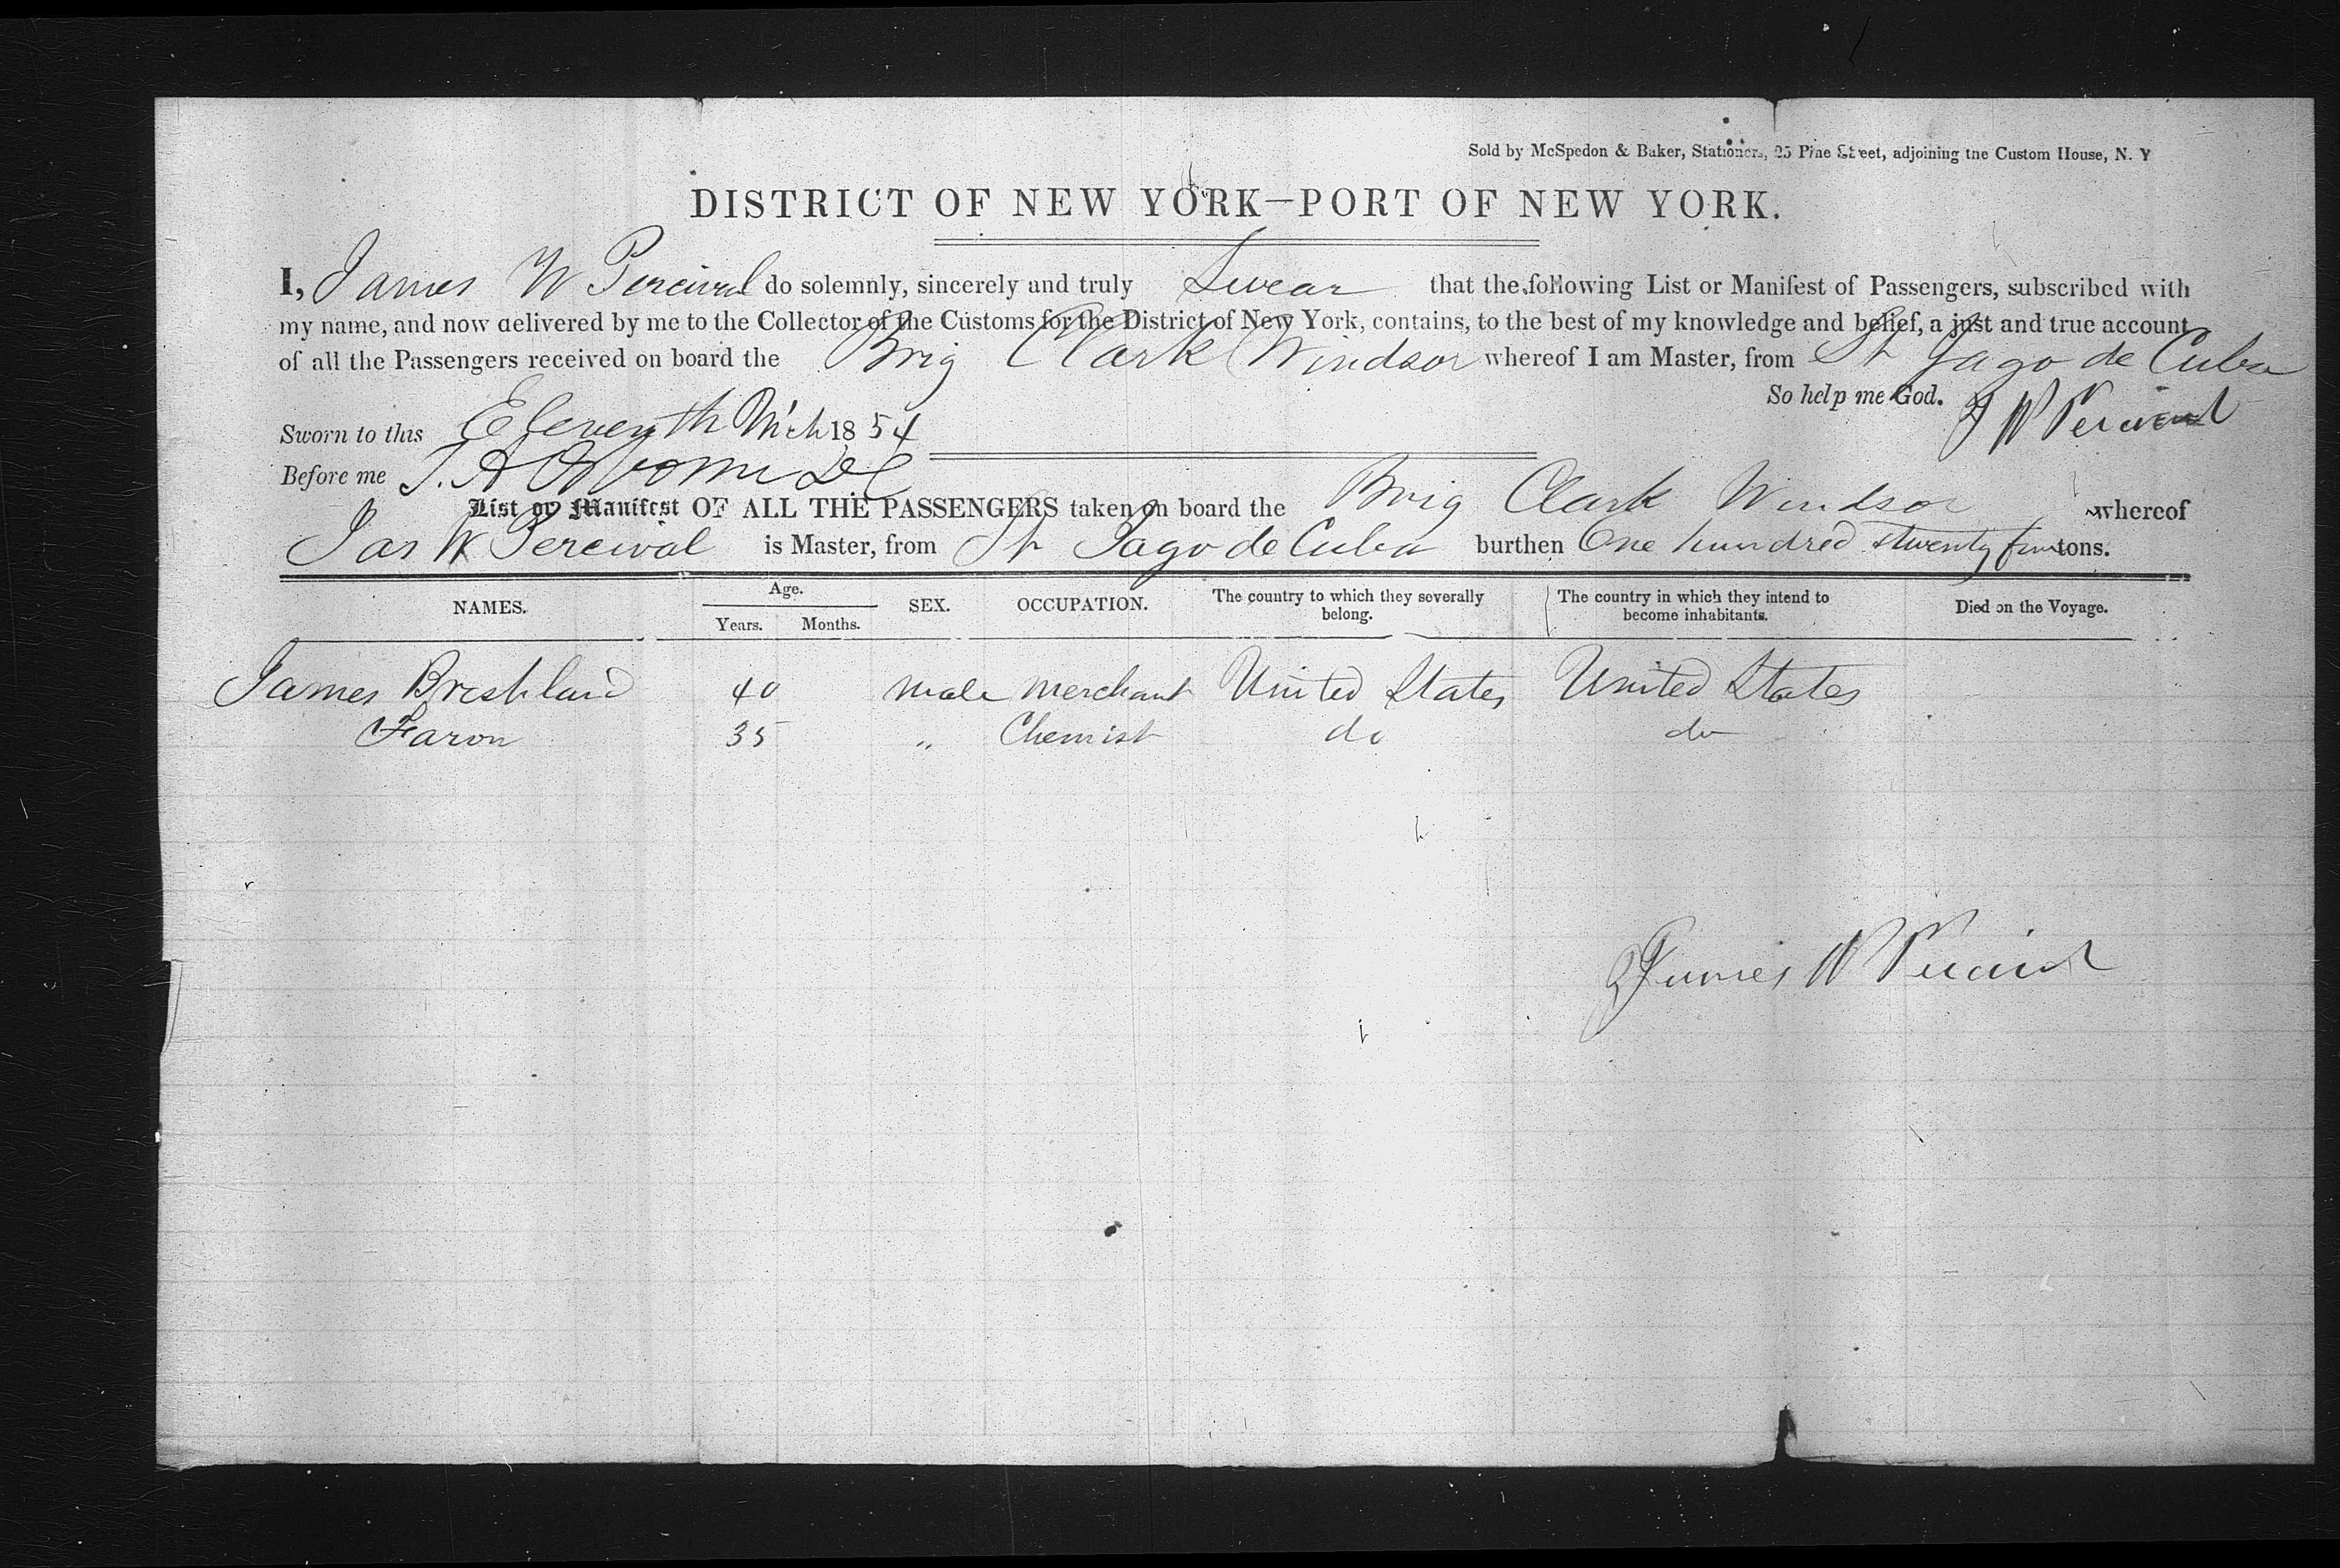 Sold by McSpedon & Baker, Stationers, 25 Pine Street, adjoining the Custom House, N. Y
DISTRICT OF NEW YORK—PORT OF NEW YORK.
I, James W Percival do solemnly, sincerely and truly Swear that the following List or Manifest of Passengers, subscribed with
my name, and now delivered by me to the Collector of the Customs for the District of New York, contains, to the best of my knowledge and belief, a just and true account
of all the Passengers received on board the Brig Clark Windsor whereof I am Master, from St Jago de Cuba
So help me God. J W Percival
Sworn to this Eleventh Mch 1854
Before me
List or Manifest OF ALL THE PASSENGERS taken on board the Brig Clark Windsor whereof
Jas W Percival is Master, from St Jago de Cuba burthen One hundred twenty tons.
NAMES. Age. Years. Months. SEX. OCCUPATION. The country to which they severally belong. The country in which they intend to become inhabitants. Died on the Voyage.
James 40 male merchant United States United States
Faron 35 " Chemist do do
James W Percival